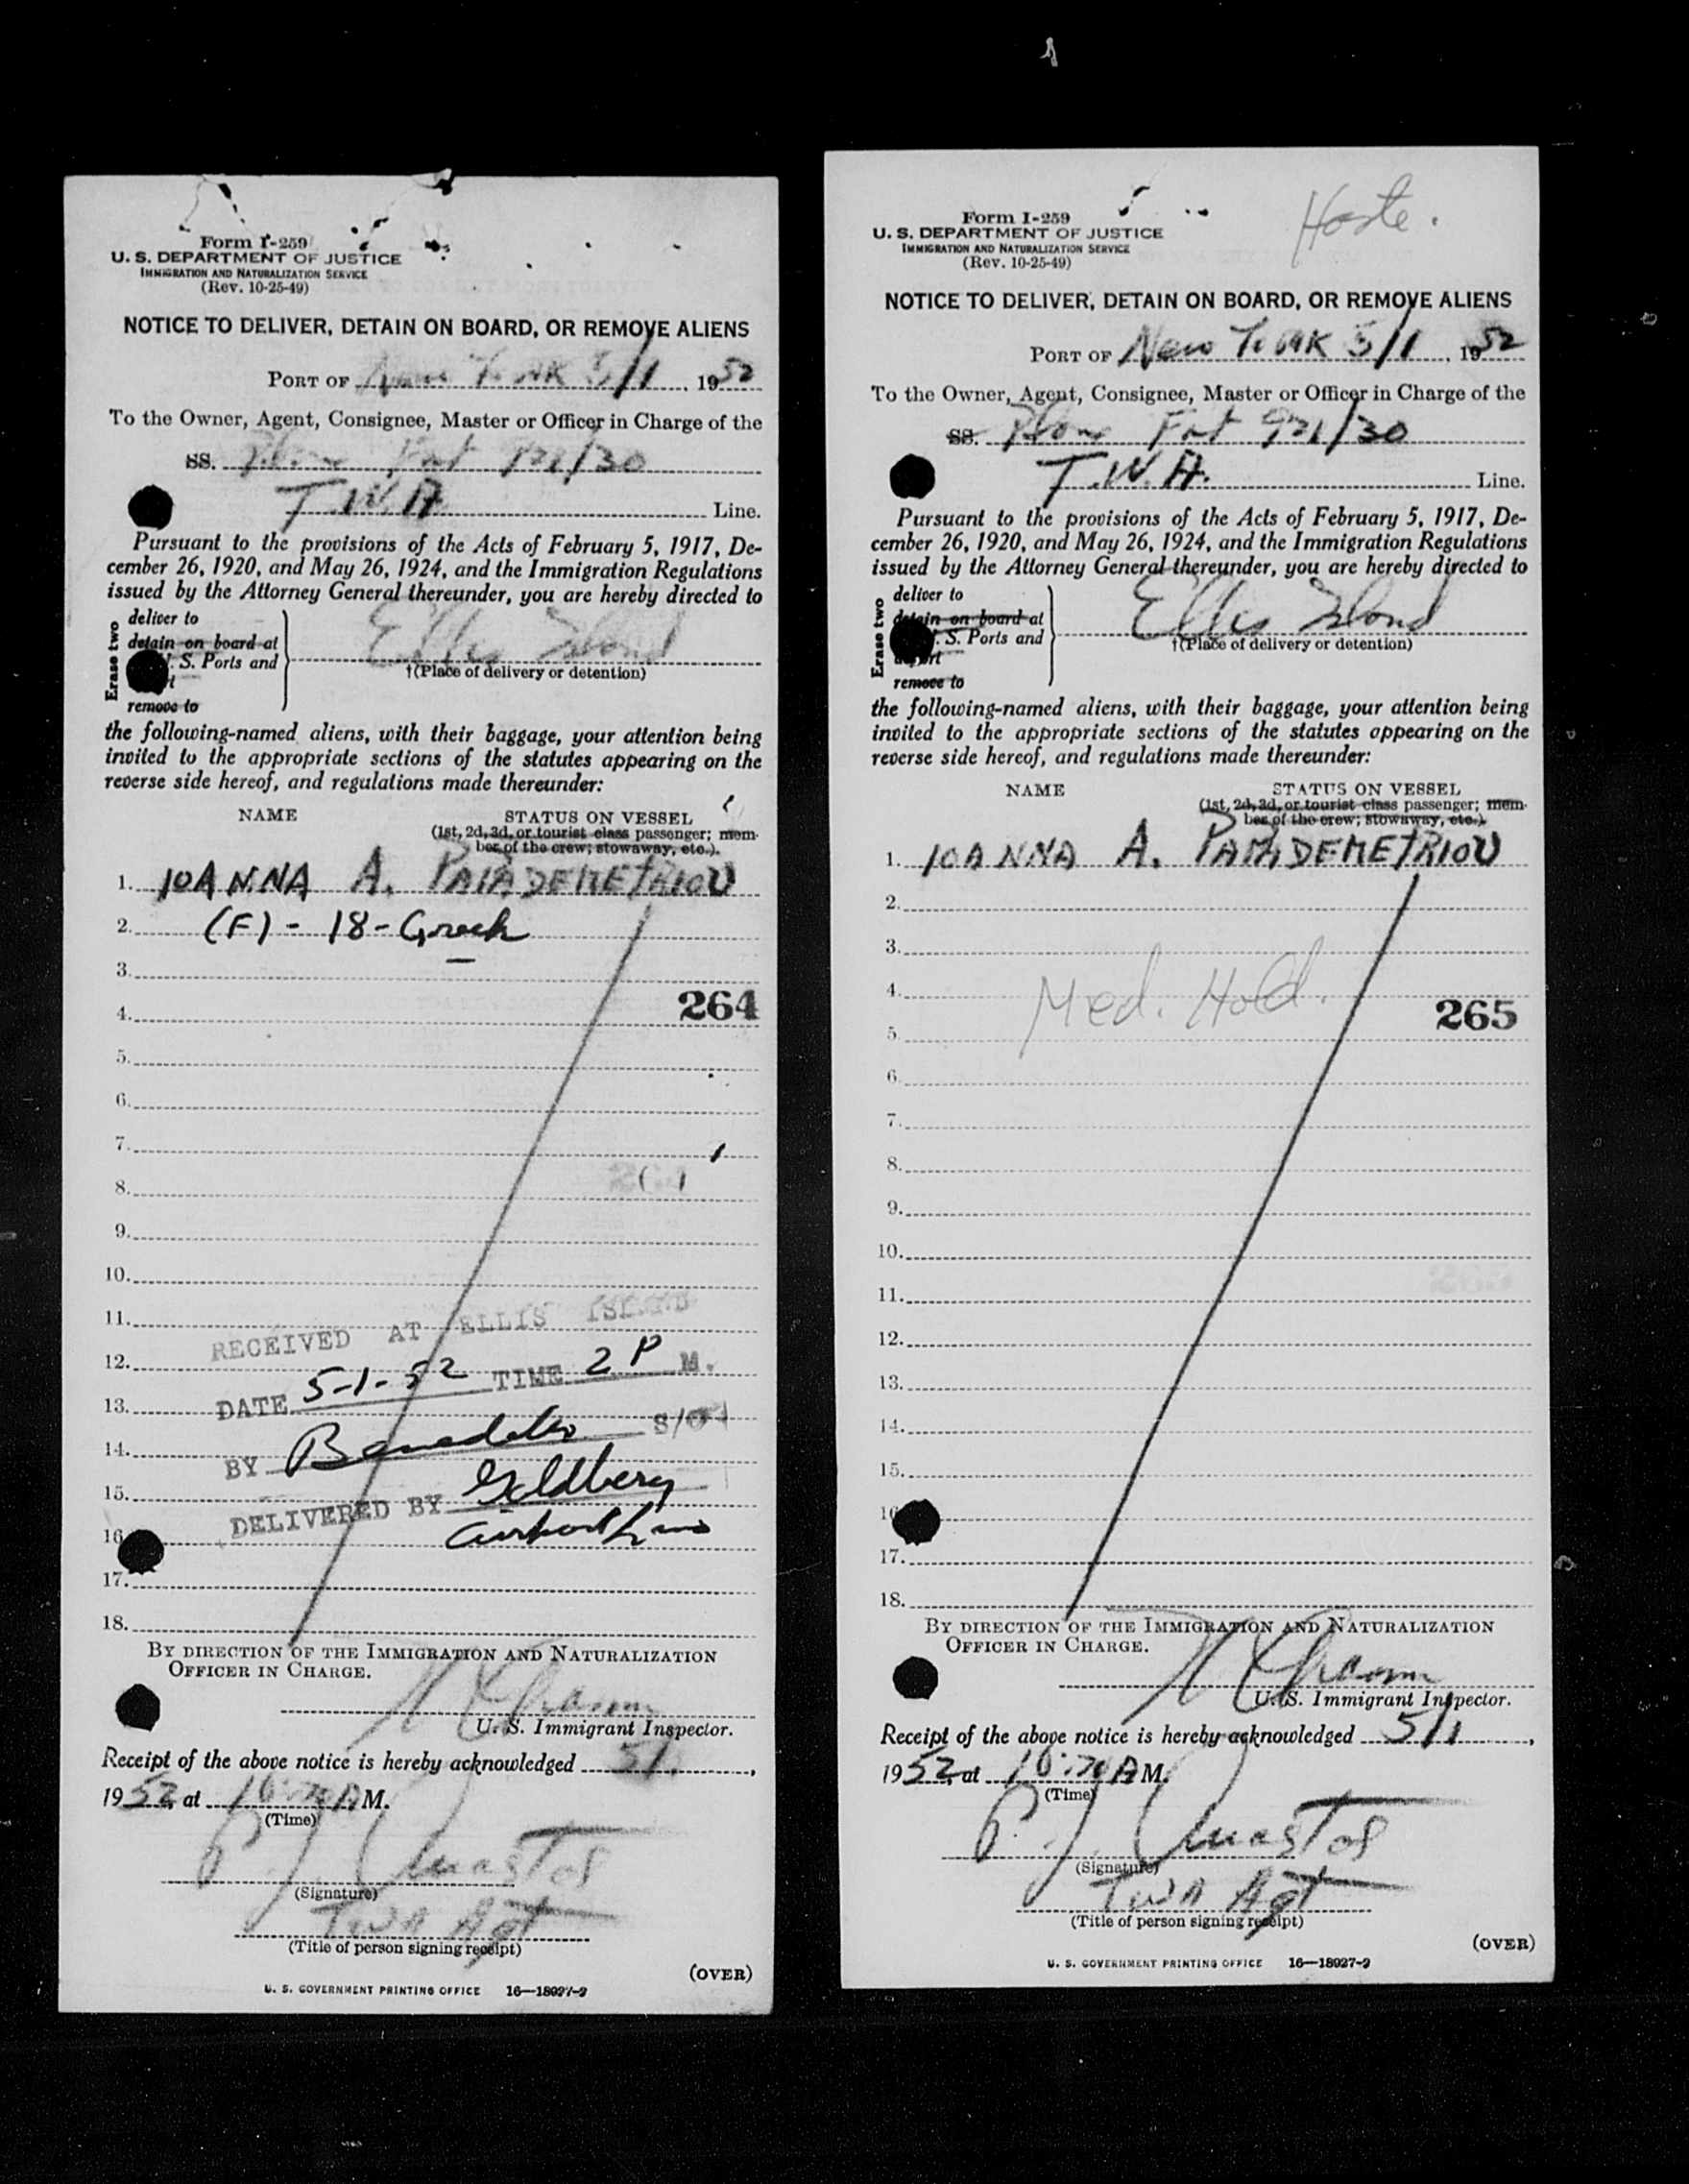 Form I-259
U. S. DEPARTMENT OF JUSTICE
IMMIGRATION AND NATURALIZATION SERVICE
(Rev. 10-25-49)
NOTICE TO DELIVER, DETAIN ON BOARD, OR REMOVE ALIENS
PORT OF New York 5/1, 1952
To the Owner, Agent, Consignee, Master or Officer in Charge of the
SS. Plane Fat 921/30
T.W.A. Line.
Pursuant to the provisions of the Acts of February 5, 1917, De-
cember 26, 1920, and May 26, 1924, and the Immigration Regulations
issued by the Attorney General thereunder, you are hereby directed to
Erase two
deliver to
detain on board at
U. S. Ports and
remove to
Ellis Island
†(Place of delivery or detention)
the following-named aliens, with their baggage, your attention being
invited to the appropriate sections of the statutes appearing on the
reverse side hereof, and regulations made thereunder:
NAME STATUS ON VESSEL
(1st, 2d, 3d, or tourist class passenger; mem-
ber of the crew; stowaway, etc.).
1. IOANNA A. PAPADEMETRIOU
2. (F) - 18 - Greek
3.
264
4.
5.
6.
7.
8.
9.
10.
11.
RECEIVED AT ELLIS ISLAND
12.
DATE 5-1-52 TIME 2 P M.
13.
14.
BY Benedetto S/O
15.
DELIVERED BY Goldberg
16. Airport Limo
17.
18.
BY DIRECTION OF THE IMMIGRATION AND NATURALIZATION
OFFICER IN CHARGE.
U. S. Immigrant Inspector.
Receipt of the above notice is hereby acknowledged 5/1,
1952, at 10:20 A M.
(Time)
(Signature)
TWA Agt
(Title of person signing receipt)
(OVER)
U. S. GOVERNMENT PRINTING OFFICE 16—18027-2
Form I-259
U. S. DEPARTMENT OF JUSTICE
IMMIGRATION AND NATURALIZATION SERVICE
(Rev. 10-25-49)
NOTICE TO DELIVER, DETAIN ON BOARD, OR REMOVE ALIENS
PORT OF New York 5/1, 1952
To the Owner, Agent, Consignee, Master or Officer in Charge of the
SS. Plane Fat 921/30
T.W.A. Line.
Pursuant to the provisions of the Acts of February 5, 1917, De-
cember 26, 1920, and May 26, 1924, and the Immigration Regulations
issued by the Attorney General thereunder, you are hereby directed to
Erase two
deliver to
detain on board at
U. S. Ports and
remove to
Ellis Island
†(Place of delivery or detention)
the following-named aliens, with their baggage, your attention being
invited to the appropriate sections of the statutes appearing on the
reverse side hereof, and regulations made thereunder:
NAME STATUS ON VESSEL
(1st, 2d, 3d, or tourist class passenger; mem-
ber of the crew; stowaway, etc.).
1. IOANNA A. PAPADEMETRIOU
2.
3.
4. Med. Hold.
265
5.
6.
7.
8.
9.
10.
11.
12.
13.
14.
15.
16.
17.
18.
BY DIRECTION OF THE IMMIGRATION AND NATURALIZATION
OFFICER IN CHARGE.
U. S. Immigrant Inspector.
Receipt of the above notice is hereby acknowledged 5/1,
1952, at 10:20 A M.
(Time)
(Signature)
TWA Agt
(Title of person signing receipt)
(OVER)
U. S. GOVERNMENT PRINTING OFFICE 16—18027-2